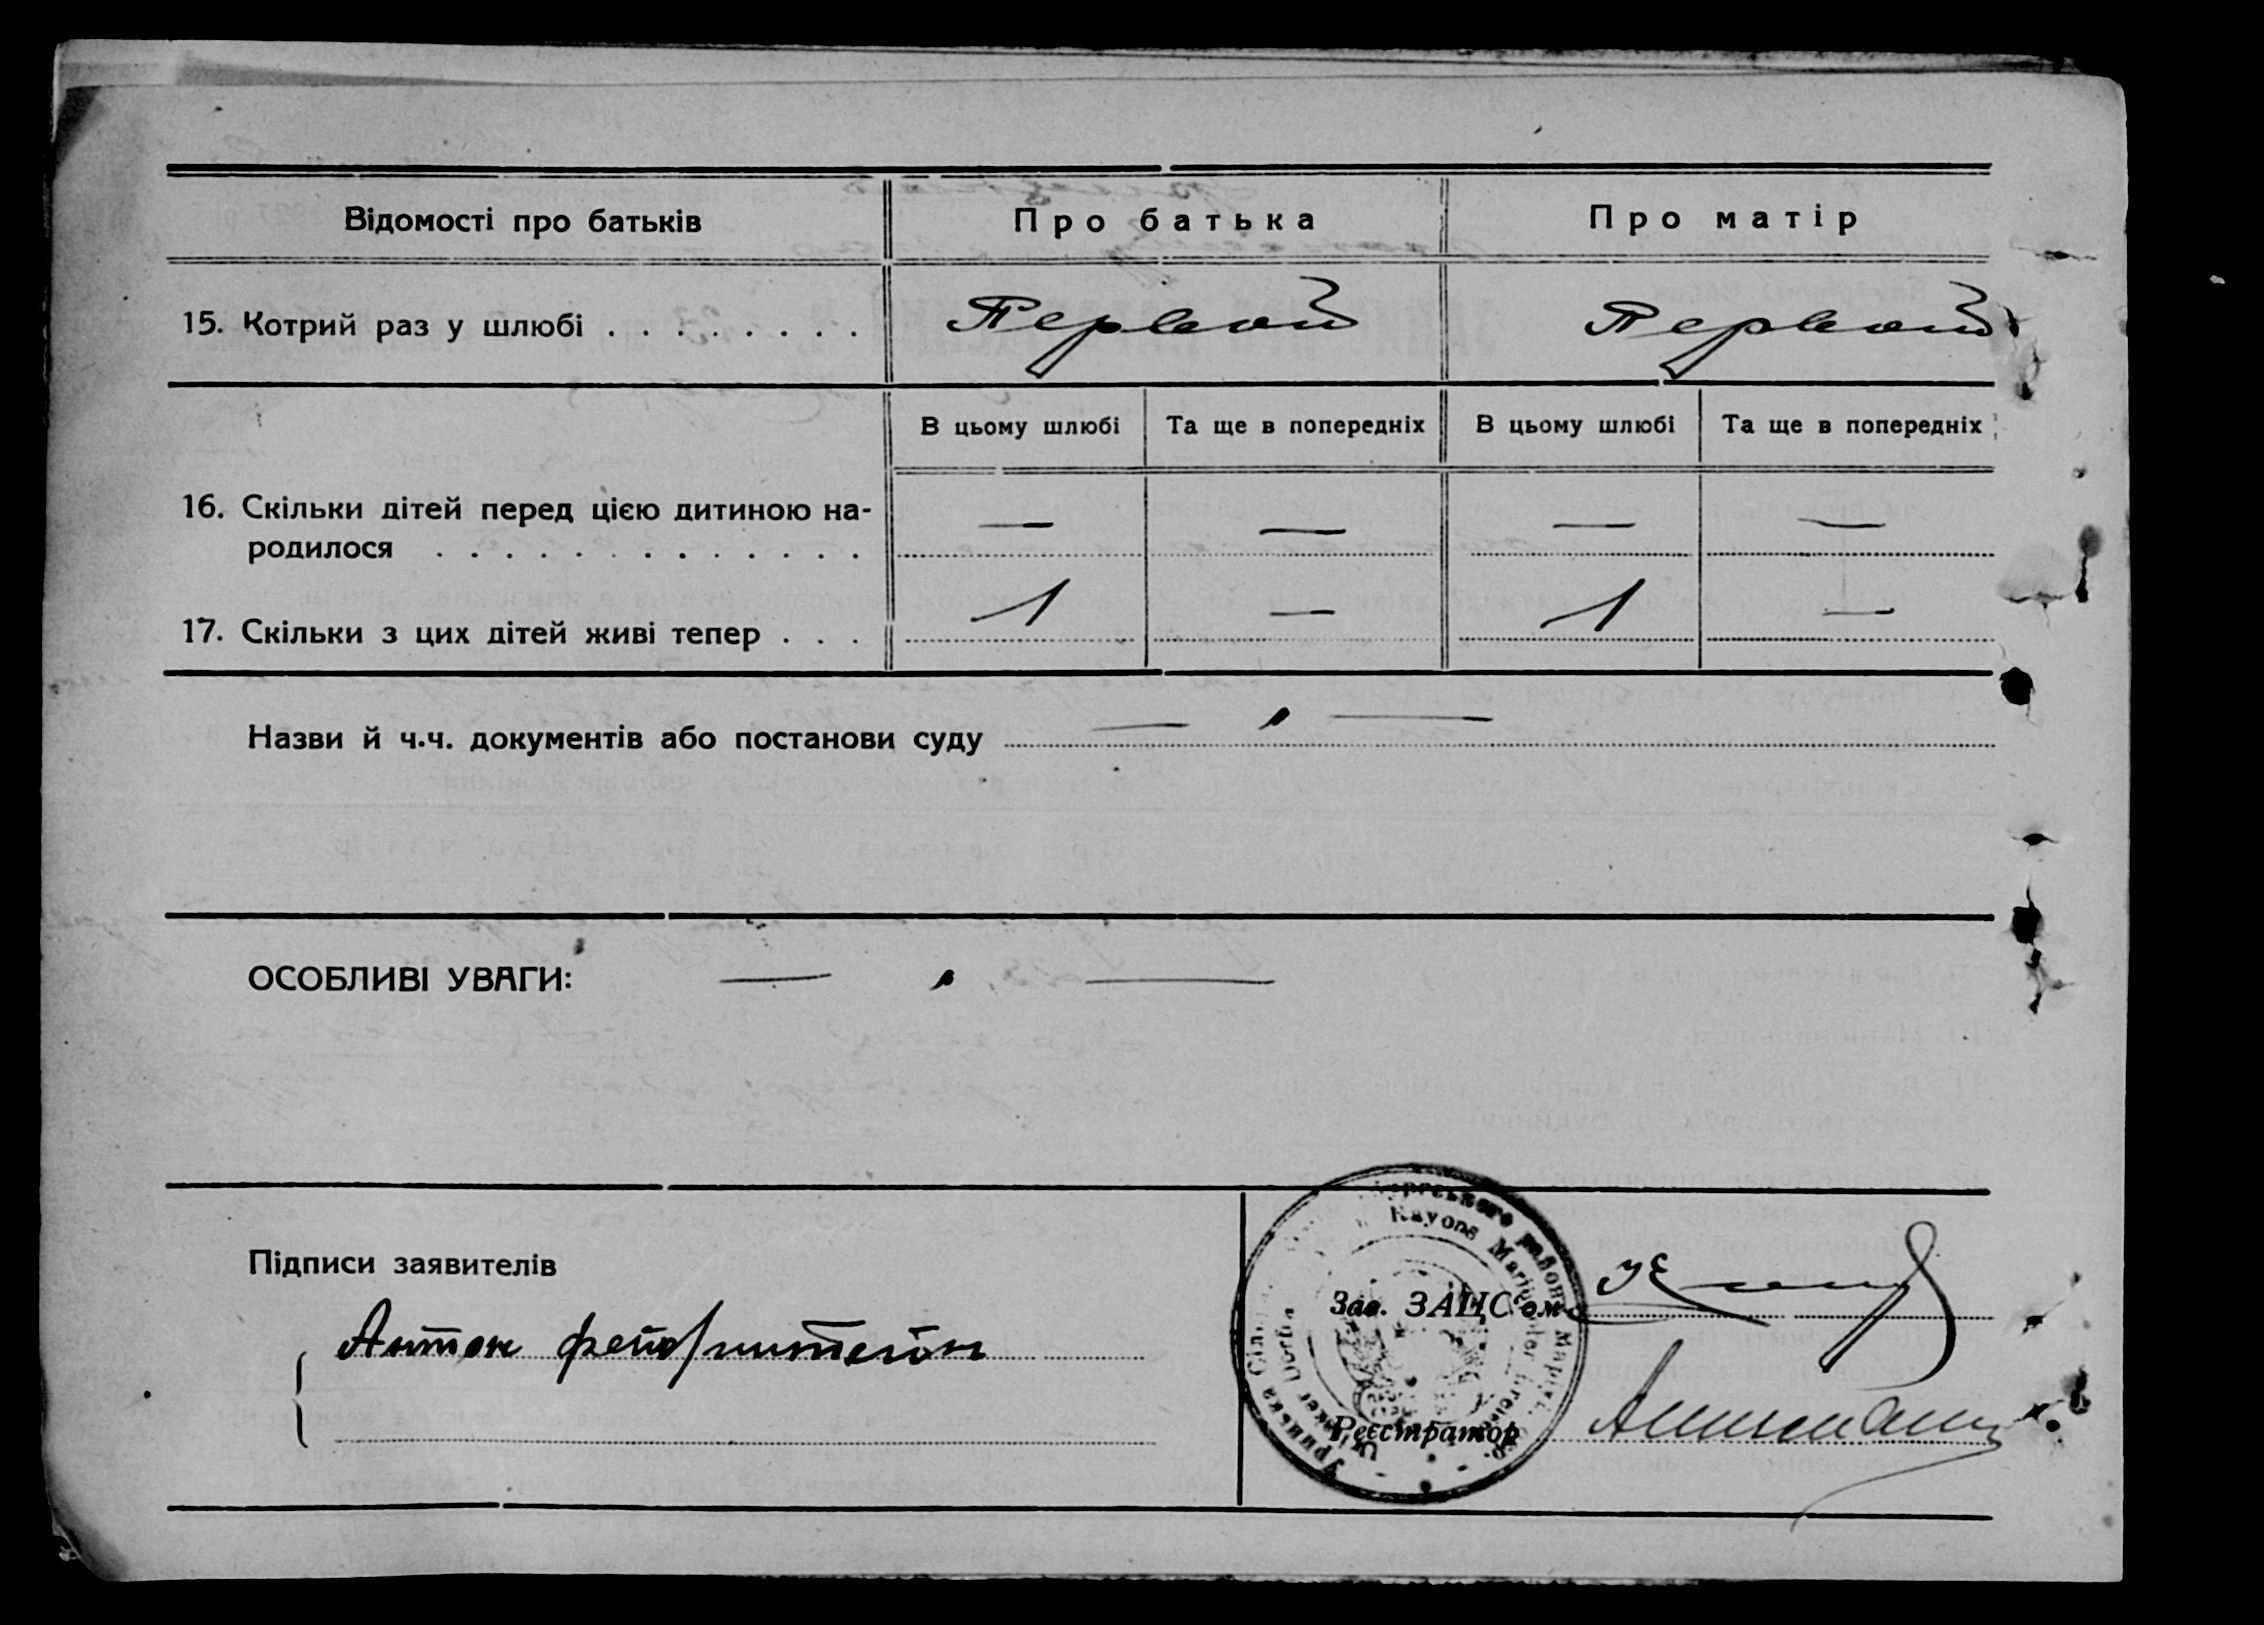 Відомості про батьків Про батька Про матір
15. Котрий раз у шлюбі . . . . . . . . Первой Первой
В цьому шлюбі Та ще в попередніх В цьому шлюбі Та ще в попередніх
16. Скільки дітей перед цією дитиною на- — — — —
родилося . . . . . . . . . . . . .
17. Скільки з цих дітей живі тепер . . . 1 — 1 —
Назви й ч.ч. документів або постанови суду
ОСОБЛИВІ УВАГИ:
Підписи заявителів
Зав. ЗАЦС'ом
Антон
Реєстратор
району Маріуп.
Rayons Mariupoler Kreises